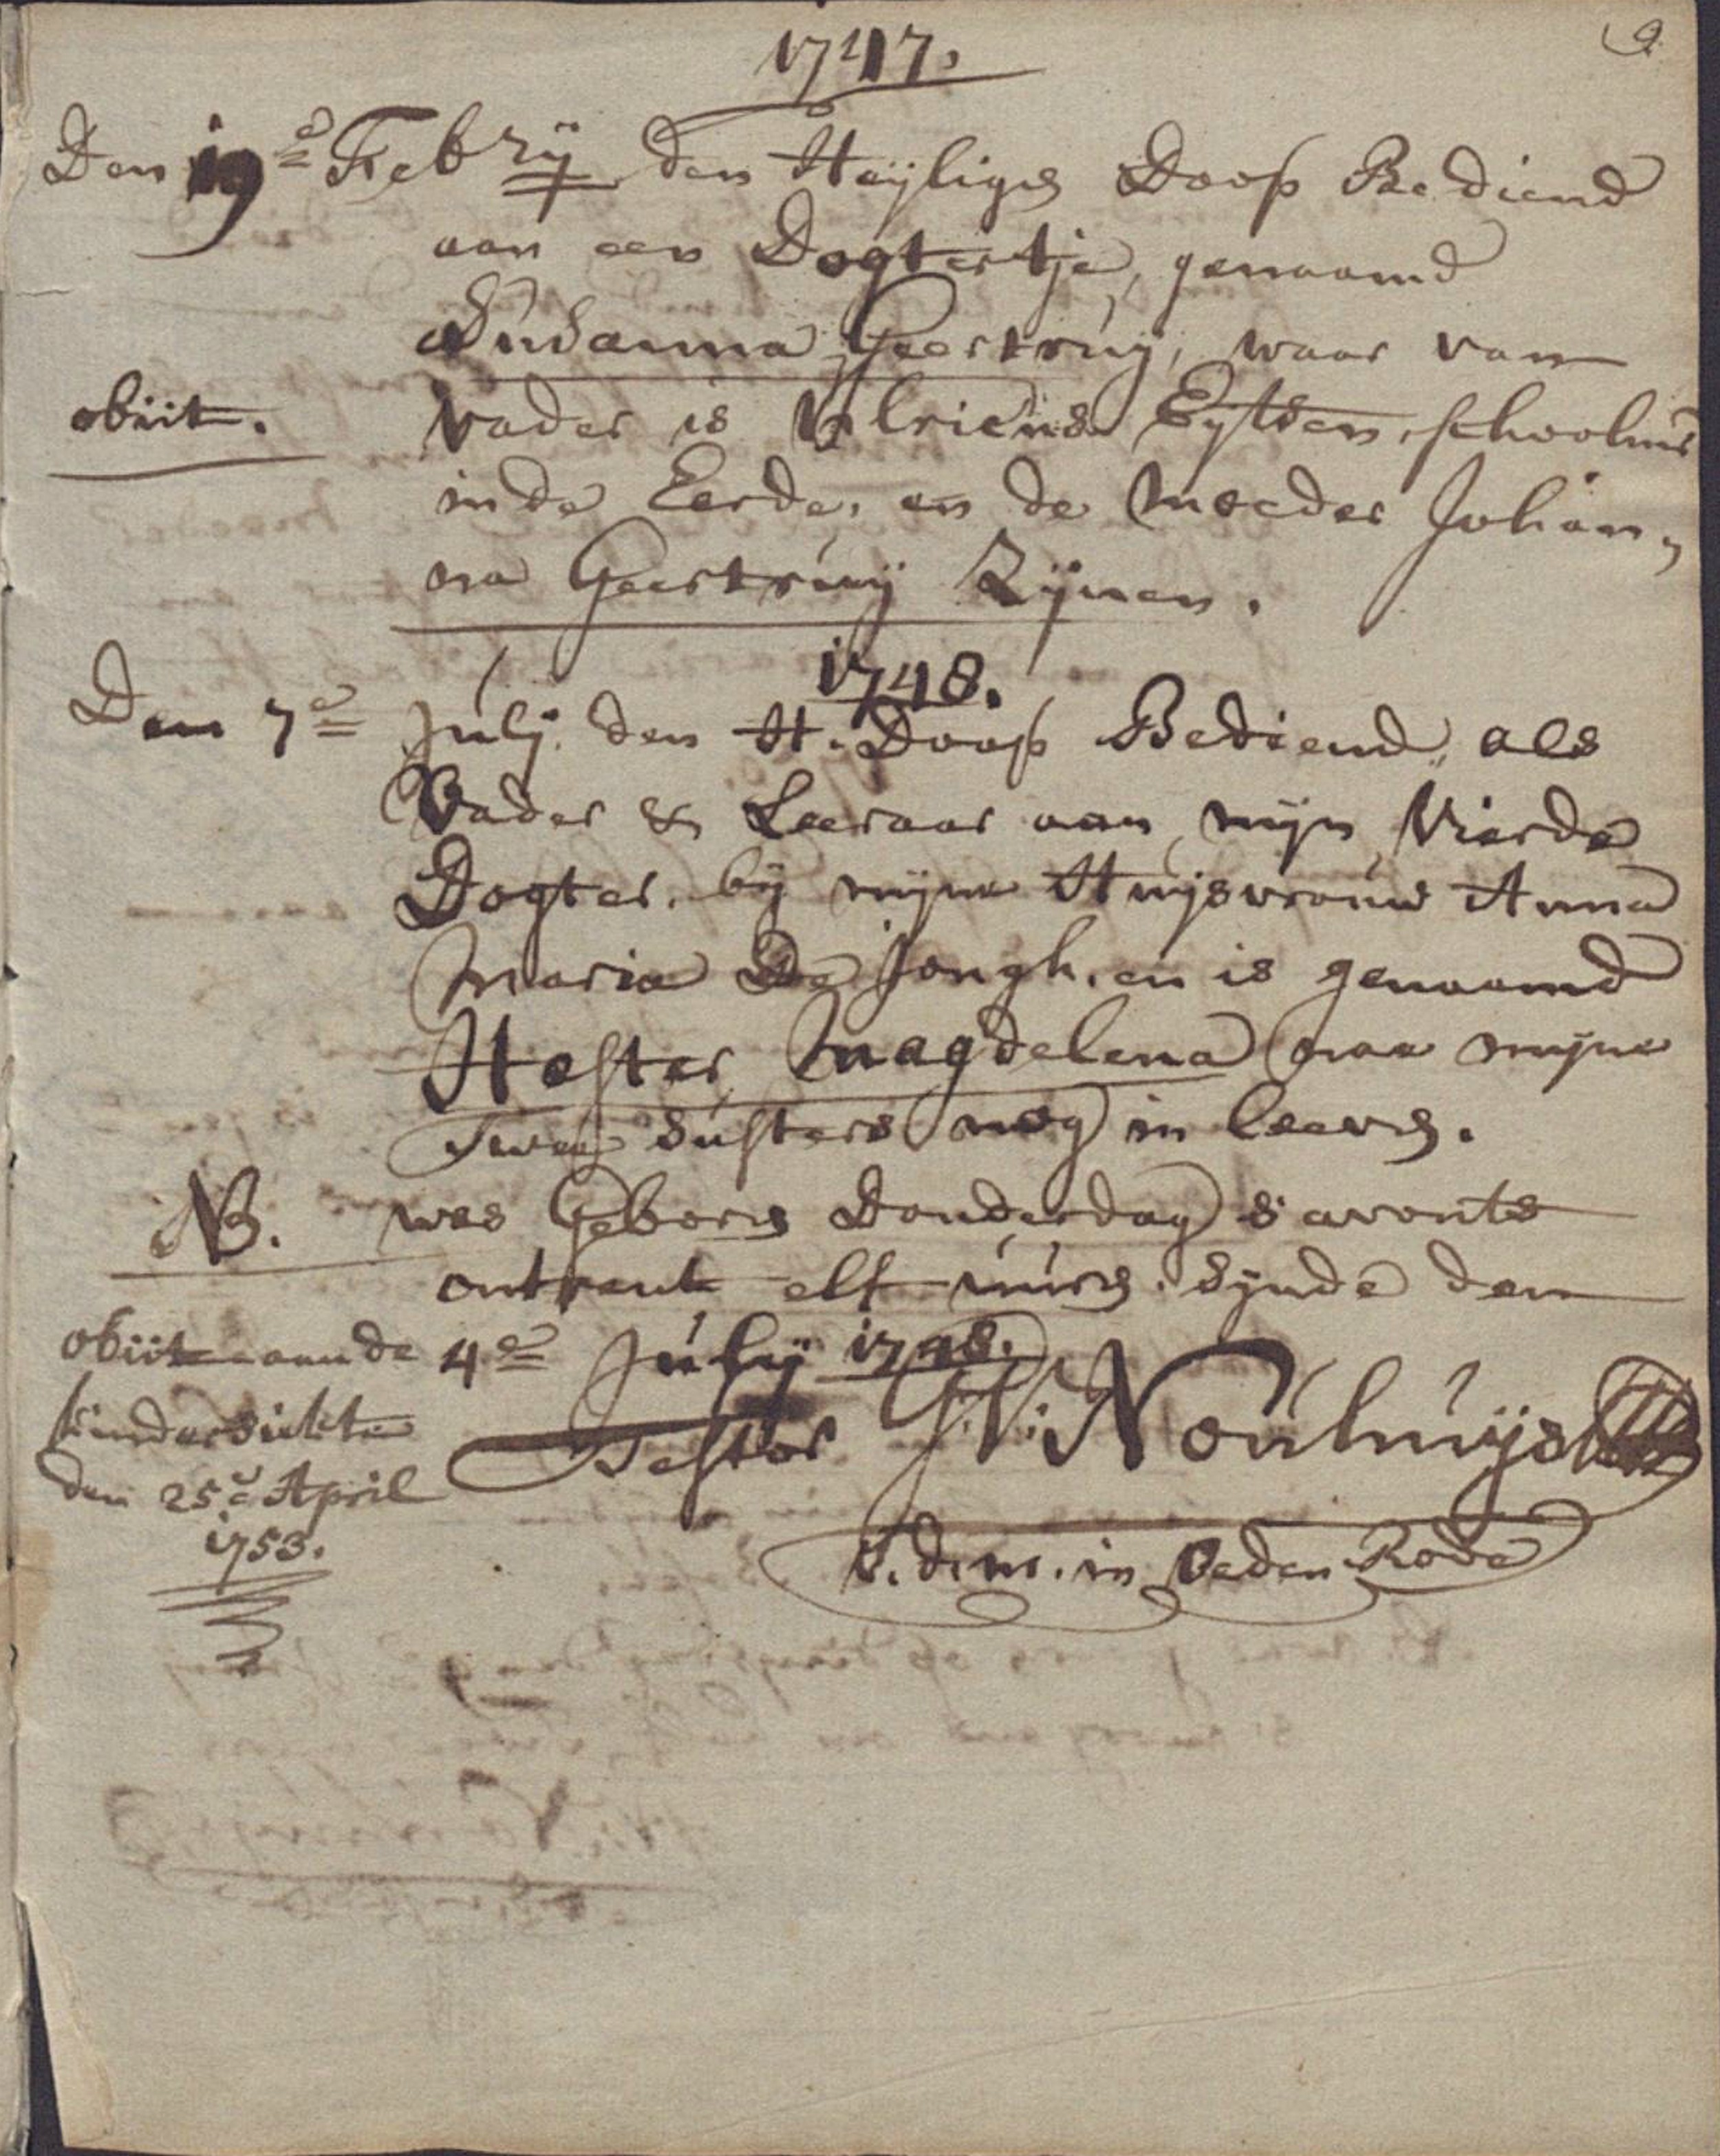 9.
1747.
Den 19e Febrij den Heijligen Doop Bediend
aan een Dogtertje, genaamd
Susanna Geertruij, waar van
obiit.
vader is Ulricus Eijtsen, schoolmr
in de Eerde, en de moeder Johan,,
na Geertruij Zijnen.
1748.
Den 7e Julij. den H. Doop Bediend, als
Vader & Leeraar aan mijn Vierde
Dogter. bij mijne Huijsvrouw Anna
Maria De Jongh. en is genaamd
Hester Magdelena naa mijne
Twee susters nog in leeven.
NB. was Geboren Donderdag s avonts
ontrent elf uuren. sijnde den
4e Julij 1748.
obiit aan de
kindersiekte
den 25e April
1753.
Testor Nouhuijs
V. d. m. in Veden Rode